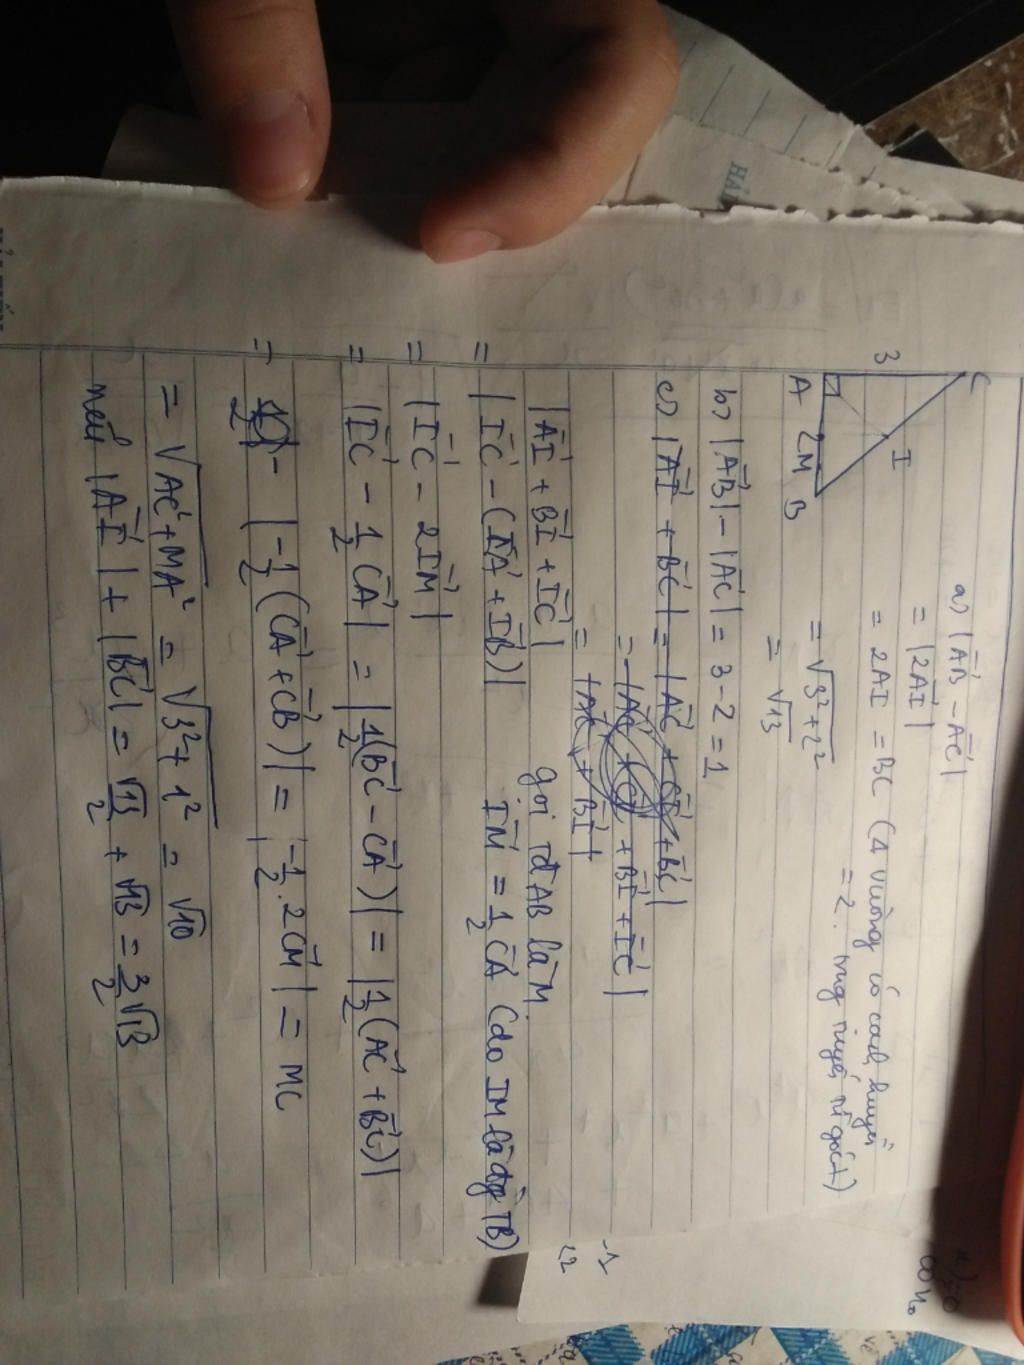 C
I
3
A 2 M B
a) |AB⃗ - AC⃗|
= |2AI⃗|
= 2AI = BC (Δ vuông có cạnh huyền
= 2. trung tuyến
= √3²+2²
= √13
b) |AB⃗| - |AC⃗| = 3 - 2 = 1
c) |AI⃗ + BC⃗| = |AC⃗ + CI⃗ + BC⃗|
+ BI⃗ + IC⃗|
= |AC⃗ + BI⃗|
|AI⃗ + BI⃗ + IC⃗| gọi tđ AB là M.
= |IC⃗ - (IA⃗ + IB⃗)| IM⃗ = 1/2 CA⃗ (do IM là đg TB)
= |IC⃗ - 2IM⃗|
= |IC⃗ - 1/2 CA⃗| = |1/2(BC⃗ - CA⃗)| = |1/2(AC⃗ + BC⃗)|
= |-1/2 (CA⃗ + CB⃗)| = |-1/2 . 2CM⃗| = MC
= √AC²+MA² = √3²+1² = √10
nếu |AI⃗| + |BC⃗| = √13/2 + √13 = 3/2 √13
-1